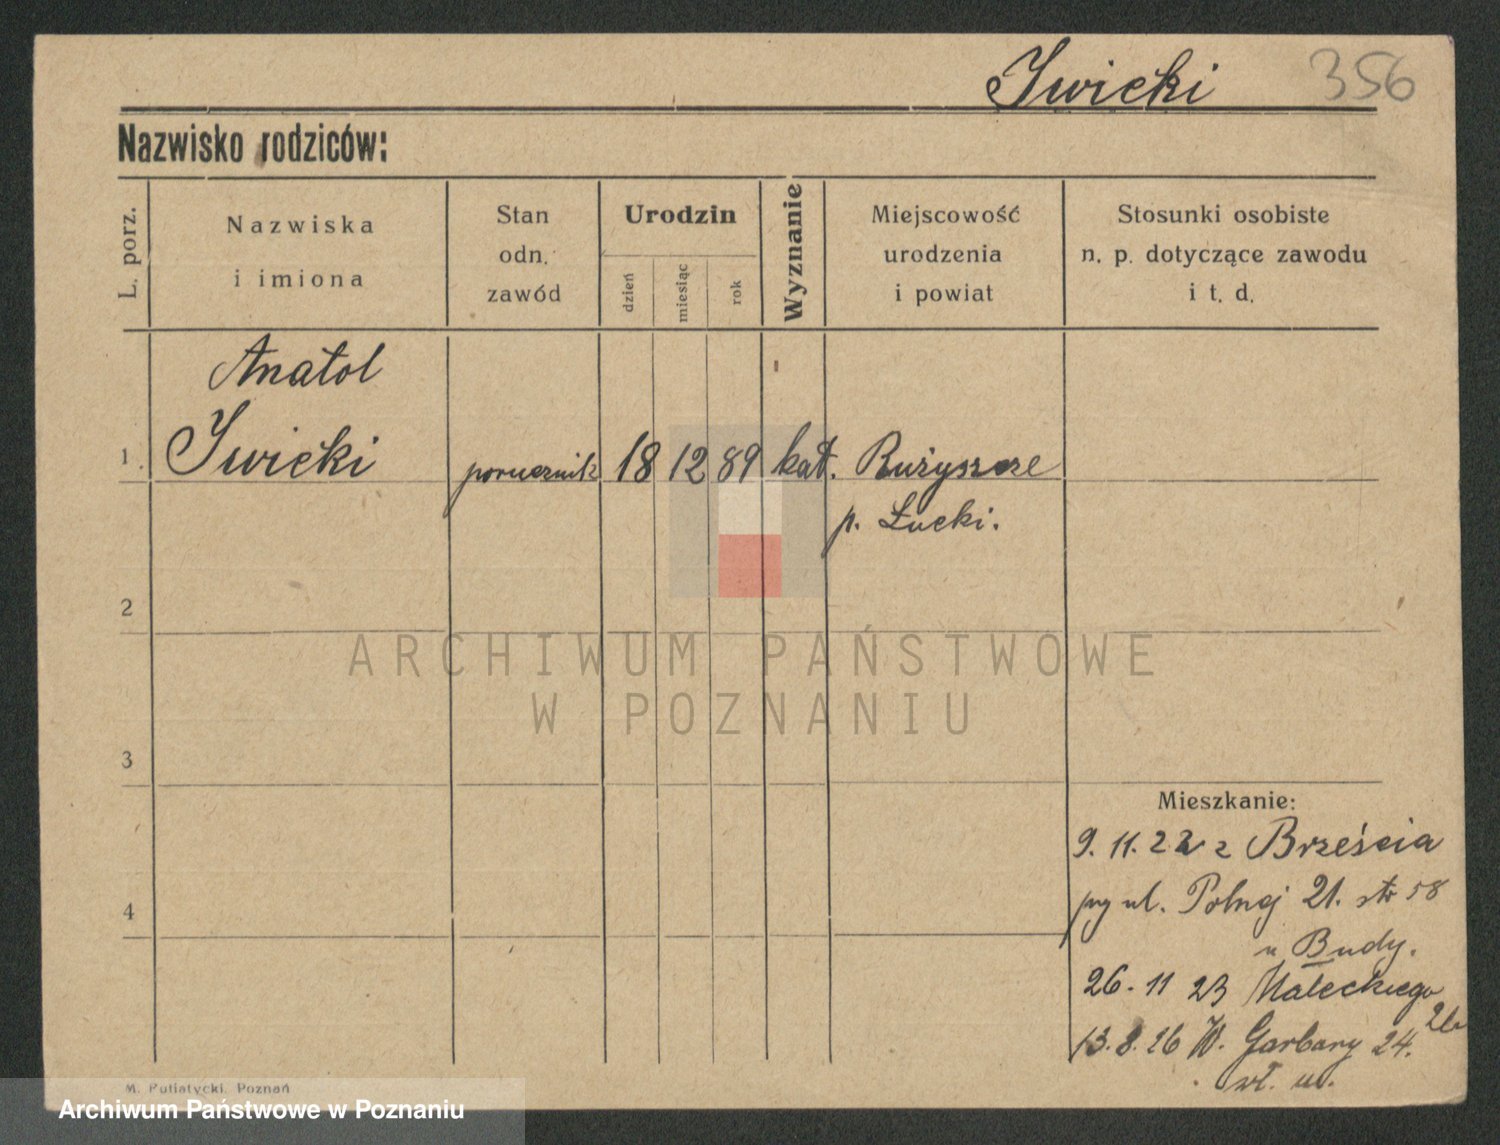 Iwicki 356
Nazwisko rodziców:
L. porz.
Nazwiska
i imiona
Stan
odn.
zawód
Urodzin
dzień
miesiąc
rok
Wyznanie
Miejscowość
urodzenia
i powiat
Stosunki osobiste
n. p. dotyczące zawodu
i t. d.
Anatol
1 Iwicki porucznik 18 12 89 kat. Rużyszcze
p. Łucki.
2
ARCHIWUM PAŃSTWOWE
W POZNANIU
3
Mieszkanie:
9. 11. 22 z Brześcia
ul. Polnej 21. 58
u Budy.
4
26. 11 23 Małeckiego
13. 8. 26 W. Garbary 24.
M. Putiatycki, Poznań
Archiwum Państwowe w Poznaniu